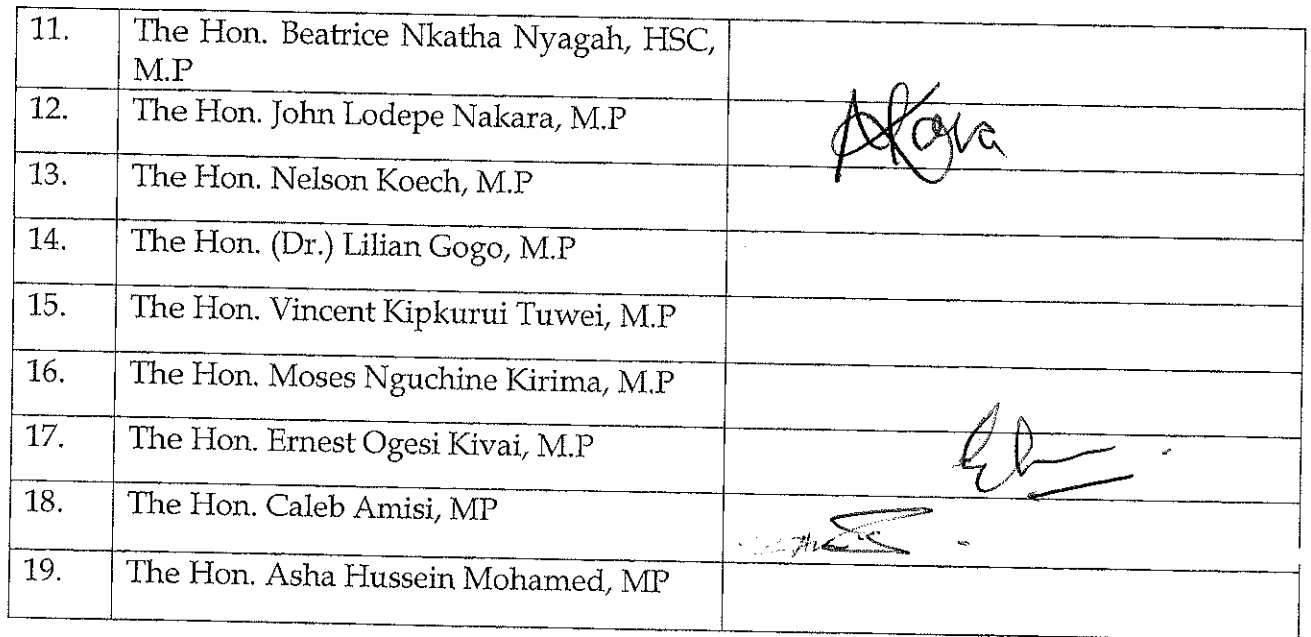 11. The Hon. Beatrice Nkatha Nyagah, HSC,
M.P
12. The Hon. John Lodepe Nakara, M.P
13. The Hon. Nelson Koech, M.P
14. The Hon. (Dr.) Lilian Gogo, M.P
15. The Hon. Vincent Kipkurui Tuwei, M.P
16. The Hon. Moses Nguchine Kirima, M.P
17. The Hon. Ernest Ogesi Kivai, M.P
18. The Hon. Caleb Amisi, MP
19. The Hon. Asha Hussein Mohamed, MP